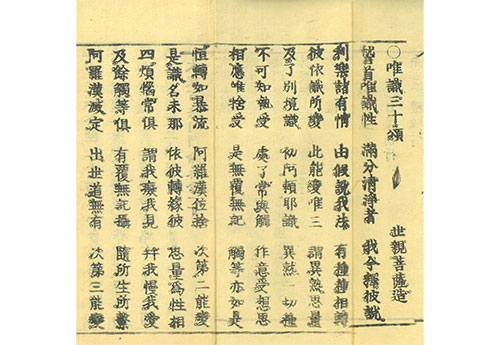 〇唯識三十頌 世親菩薩造
稽首唯識性 滿分清淨者 我今釋彼說
利樂諸有情 由假說我法 有種種相轉
彼依識所變 此能變唯三 謂異熟思量
及了別境識 初阿頼耶識 異熟一切種
不可知執受 處了常與觸 作意受想思
相應唯捨受 是無覆無記 觸等亦如是
恒轉如暴流 阿羅漢位捨 次第二能變
是識名未那 依彼轉緣彼 思量為性相
四煩惱常俱 謂我癡我見 并我慢我愛
及餘觸等俱 有覆無記攝 隨所生所繫
阿羅漢滅定 出世道無有 次第三能變